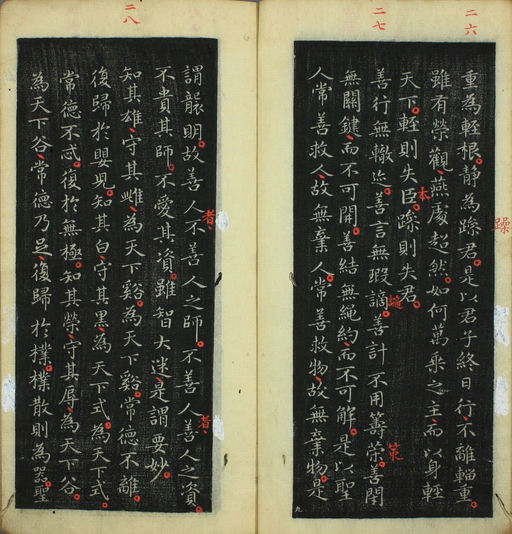 二六
重為輕根。靜為躁君。是以君子終日行、不離輜重。
躁
雖有榮觀、燕處超然。如何萬乘之主、而以身輕
天下。輕則失臣。躁則失君。
本
二七
善行無轍迹。善言無瑕讁。善計不用籌筞。善閉
策
無關鍵、而不可開。善結無繩約、而不可解。是以聖
人常善救人、故無棄人。常善救物、故無棄物。是
九
謂襲明。故善人不善人之師。不善人善人之資。
者、
者、
不貴其師。不愛其資。雖智大迷。是謂要妙。
二八
知其雄、守其雌、為天下谿。為天下谿。常德不離、
復歸於嬰兒。知其白、守其黑、為天下式。為天下式。
常德不忒。復於無極。知其榮、守其辱、為天下谷。
為天下谷、常德乃足。復歸於樸。樸散則為器。聖